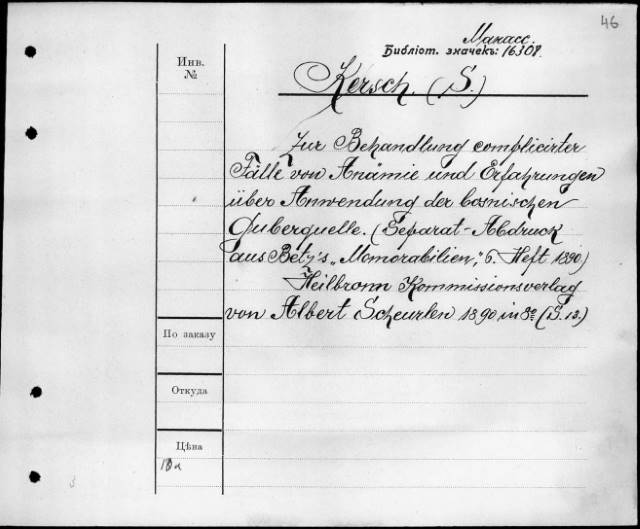 46
Манасс.
Инв.
№
Библіот. значекъ: 16307.
Kersch. (S.)
Zur Behandlung complicirter
Fälle von Anämie und Erfahrungen
über Anwendung der bosnischen
Guberquelle. (Separat-Abdruck
aus Betz's „Memorabilien," 6. Heft 1890)
Heilbronn Kommissionsverlag
von Albert Scheurlen 1890 in 8º (S. 13.)
По заказу
Откуда
Цѣна